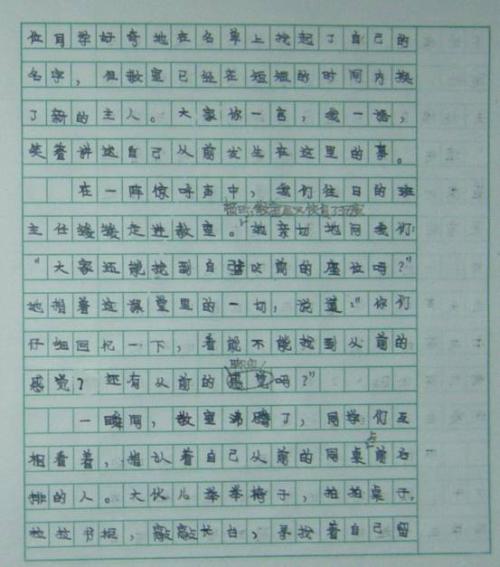 位同学好奇地在名单上找起了自己的
名字，但教室已经在短短的时间内换
了新的主人。大家你一言，我一语，
笑着讲述自己从前发生在这里的事。
在一阵惊呼声中，我们往日的班
主任缓缓走进教室。她亲切地问我们：
“大家还能找到自己以前的座位吗？”
她指着这课堂里的一切，说道：“你们
仔细回忆一下，看能不能找到从前的
感觉？还有从前的感觉吗？”
一瞬间，教室沸腾了，同学们互
相看着，指认着自己从前的同桌前后
排的人。大伙儿举举椅子，拍拍桌子，
拉拉书柜，敲敲长白，寻找着自己留